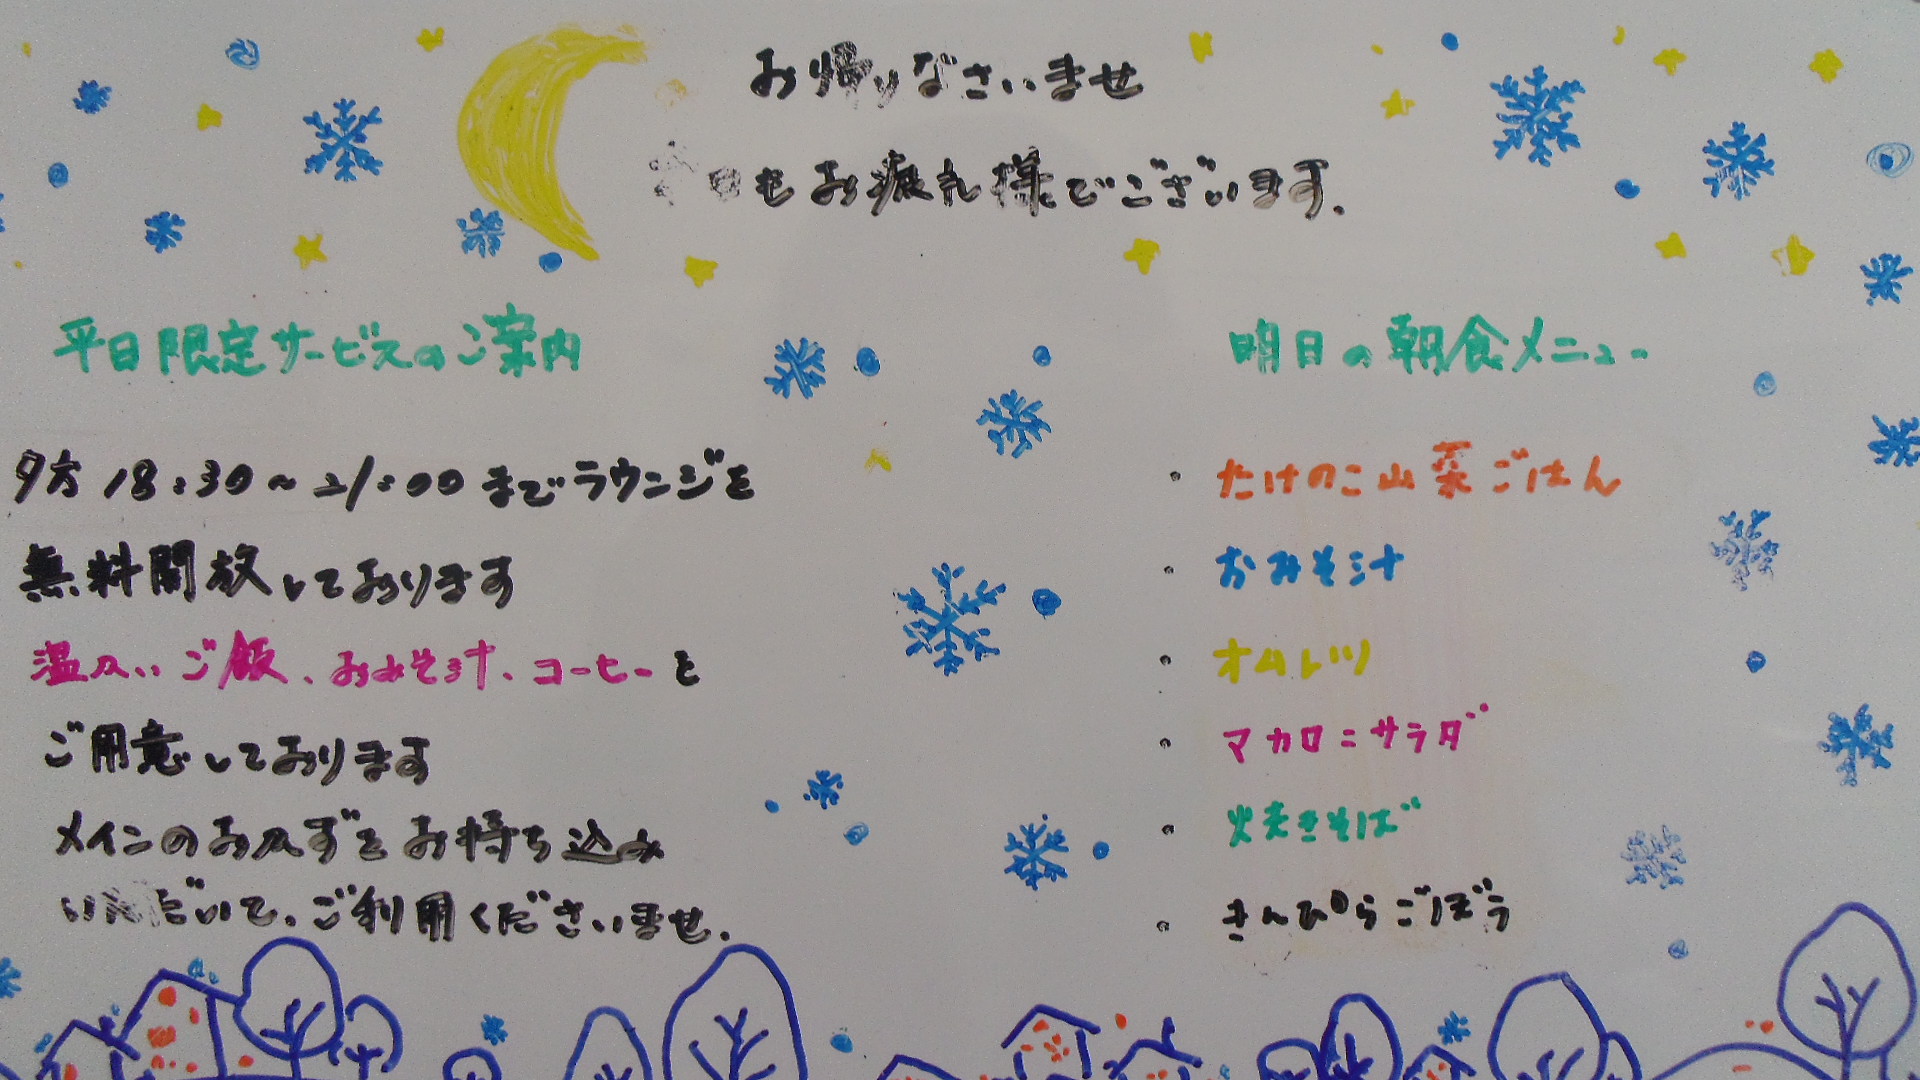 お帰りなさいませ
今日もお疲れ様でございます.
平日限定サービスのご案内
夕方 18:30～21:00までラウンジを
無料開放しております
温かいご飯、おみそ汁、コーヒーを
ご用意しております
メインのおかずをお持ち込み
いただいて、ご利用くださいませ.
明日の朝食メニュー
・たけのこ山菜ごはん
・おみそ汁
・オムレツ
・マカロニサラダ
・火焼きそば
・きんぴらごぼう